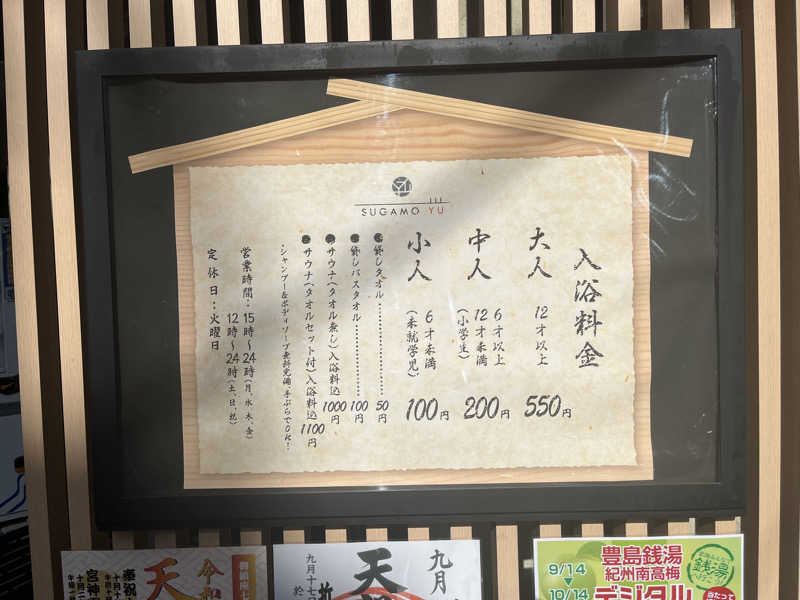 SUGAMO YU
入浴料金
大人 12才以上 550円
中人 6才以上
12才未満
(小学生) 200円
小人 6才未満
(未就学児) 100円
●貸しタオル………………50円
●貸しバスタオル………………100円
●サウナ(タオル無し)入浴料込 1000円
●サウナ(タオルセット付)入浴料込 1100円
・シャンプー&ボディソープ無料完備、手ぶらでOK!・
営業時間:15時~24時(月、水、木、金)
12時~24時(土、日、祝)
定休日:火曜日
令和
天
奉祝
宮神
九月
天
九月十七
9/14
10/14
豊島銭湯
紀州南高梅
デジタル
銭湯
当たって